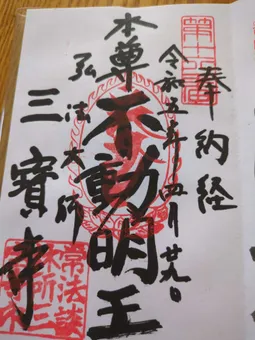 奉納経
令和五年四月廿九日
本尊不動明王
弘法大師
三寳寺